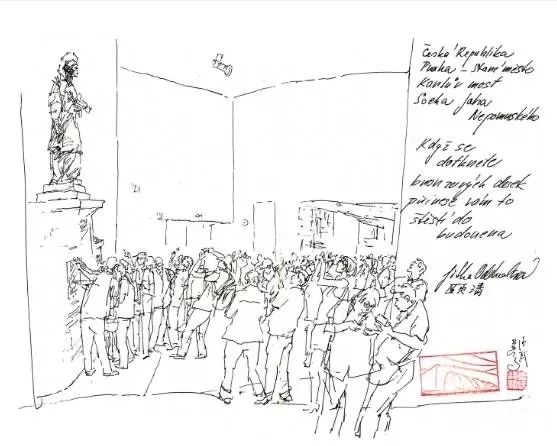 Česká Republika
Praha - Staré město
Karlův most
Socha Jana
Nepomuského
Když se
dotknete
bronzových desek
přinese vám to
štěstí do
budoucna